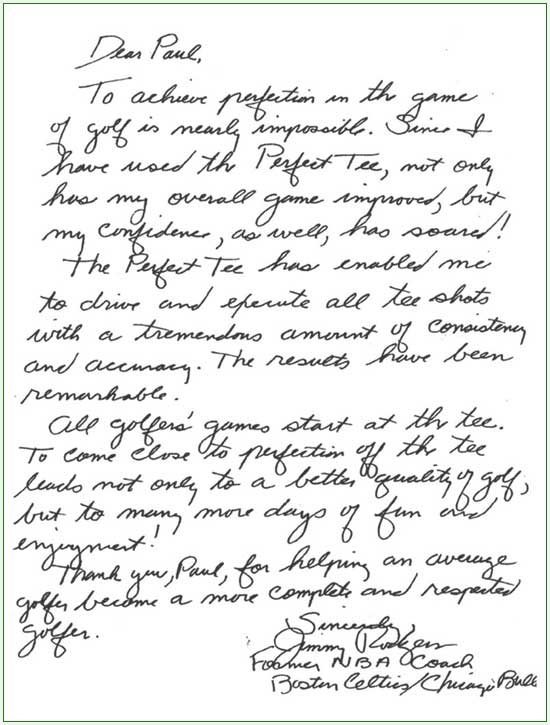 Dear Paul,
To achieve perfection in the game
of golf is nearly impossible. Since I
have used the Perfect Tee, not only
has my overall game improved, but
my confidence, as well, has soared!
The Perfect Tee has enabled me
to drive and execute all tee shots
with a tremendous amount of consistency
and accuracy. The results have been
remarkable.
All golfers' games start at the tee.
To come close to perfection off the tee
leads not only to a better quality of golf,
but to many more days of fun and
enjoyment!
Thank you, Paul, for helping an average
golfer become a more complete and respected
golfer.
Sincerely,
Jimmy Rodgers
Former NBA Coach
Boston Celtics/Chicago Bulls